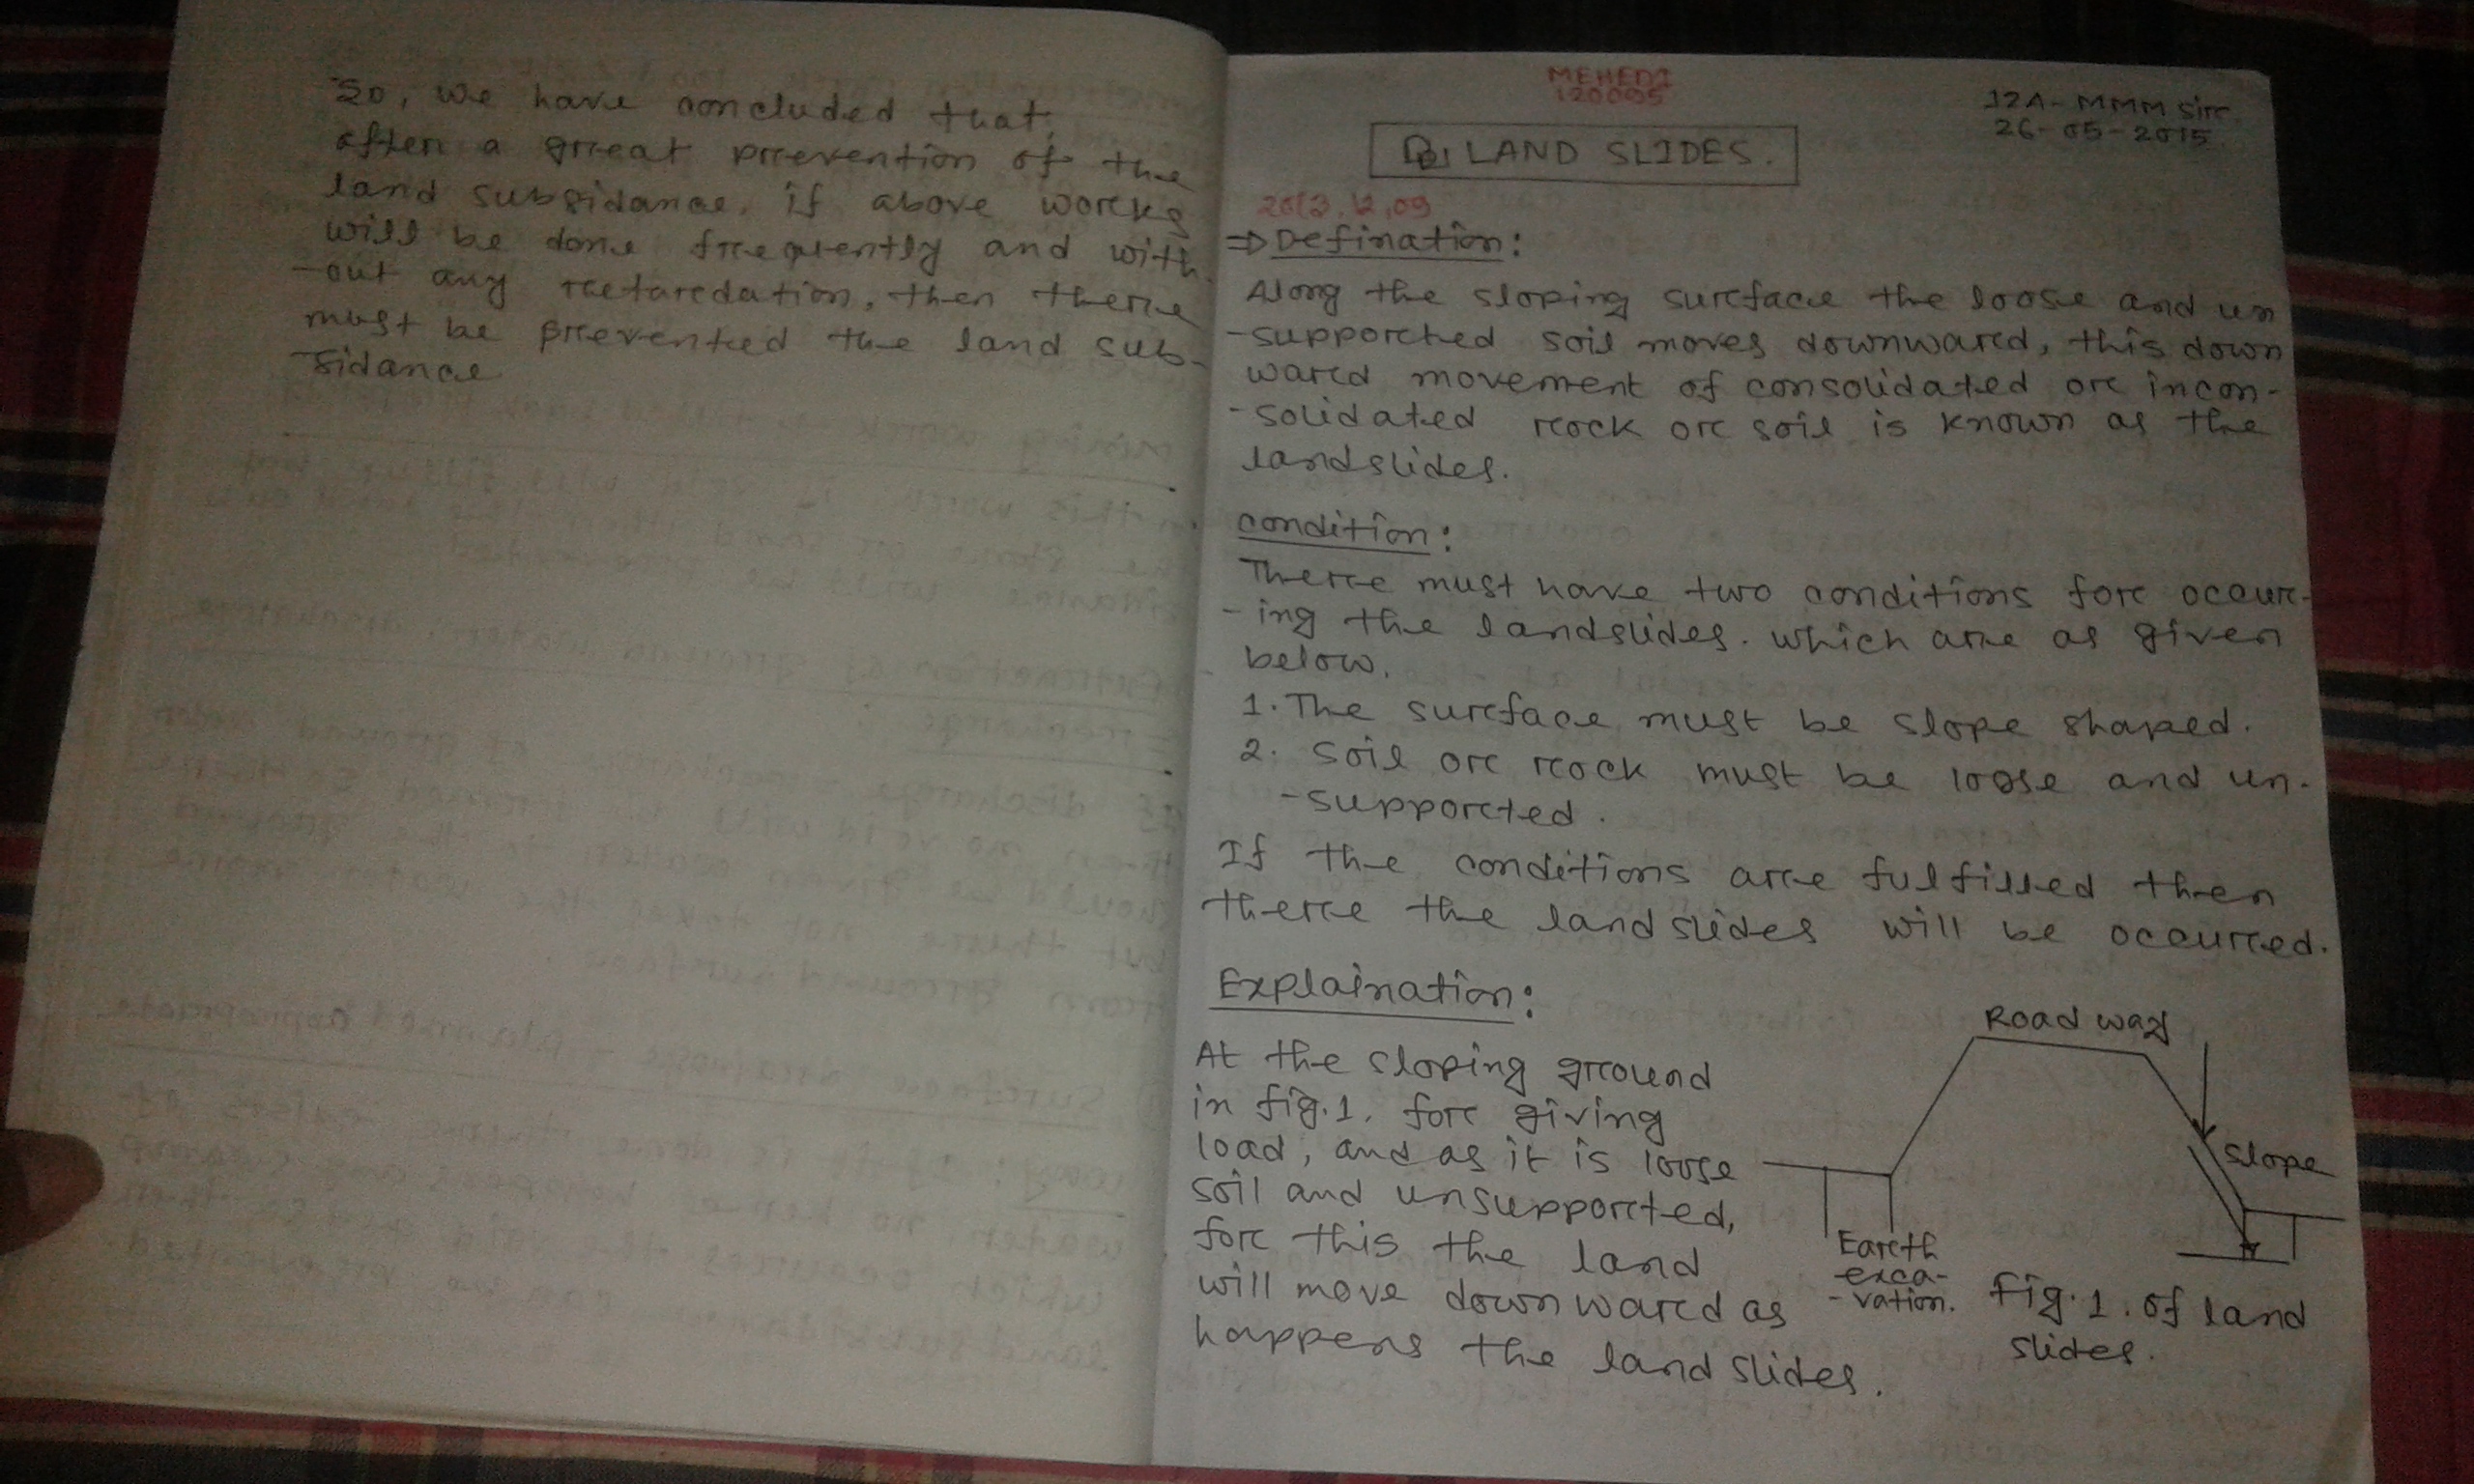 So, we have concluded that,
after a great prevention of the
land subsidance, if above works
will be done frequently and with
-out any retardation, then there
must be prevented the land sub-
-sidance
MEHEDI
120005
12A-MMM Sir
26-05-2015
LAND SLIDES.
2013.12.09
⇒ Defination:
Along the sloping surface the loose and un
-supported soil moves downward, this down
ward movement of consolidated or incon-
-solidated rock or soil is known as the
landslides.
condition:
There must have two conditions for occur-
-ing the landslides. which are as given
below.
1. The surface must be slope shaped.
2. Soil or rock must be loose and un-
-supported.
If the conditions are fulfilled then
there the landslides will be occurred.
Explaination:
At the sloping ground
in fig.1. for giving
load, and as it is loose
soil and unsupported,
for this the land
will move downward as
happens the landslides.
Road way
Slope
Earth
exca-
-vation.
Fig.1. of land
slides.